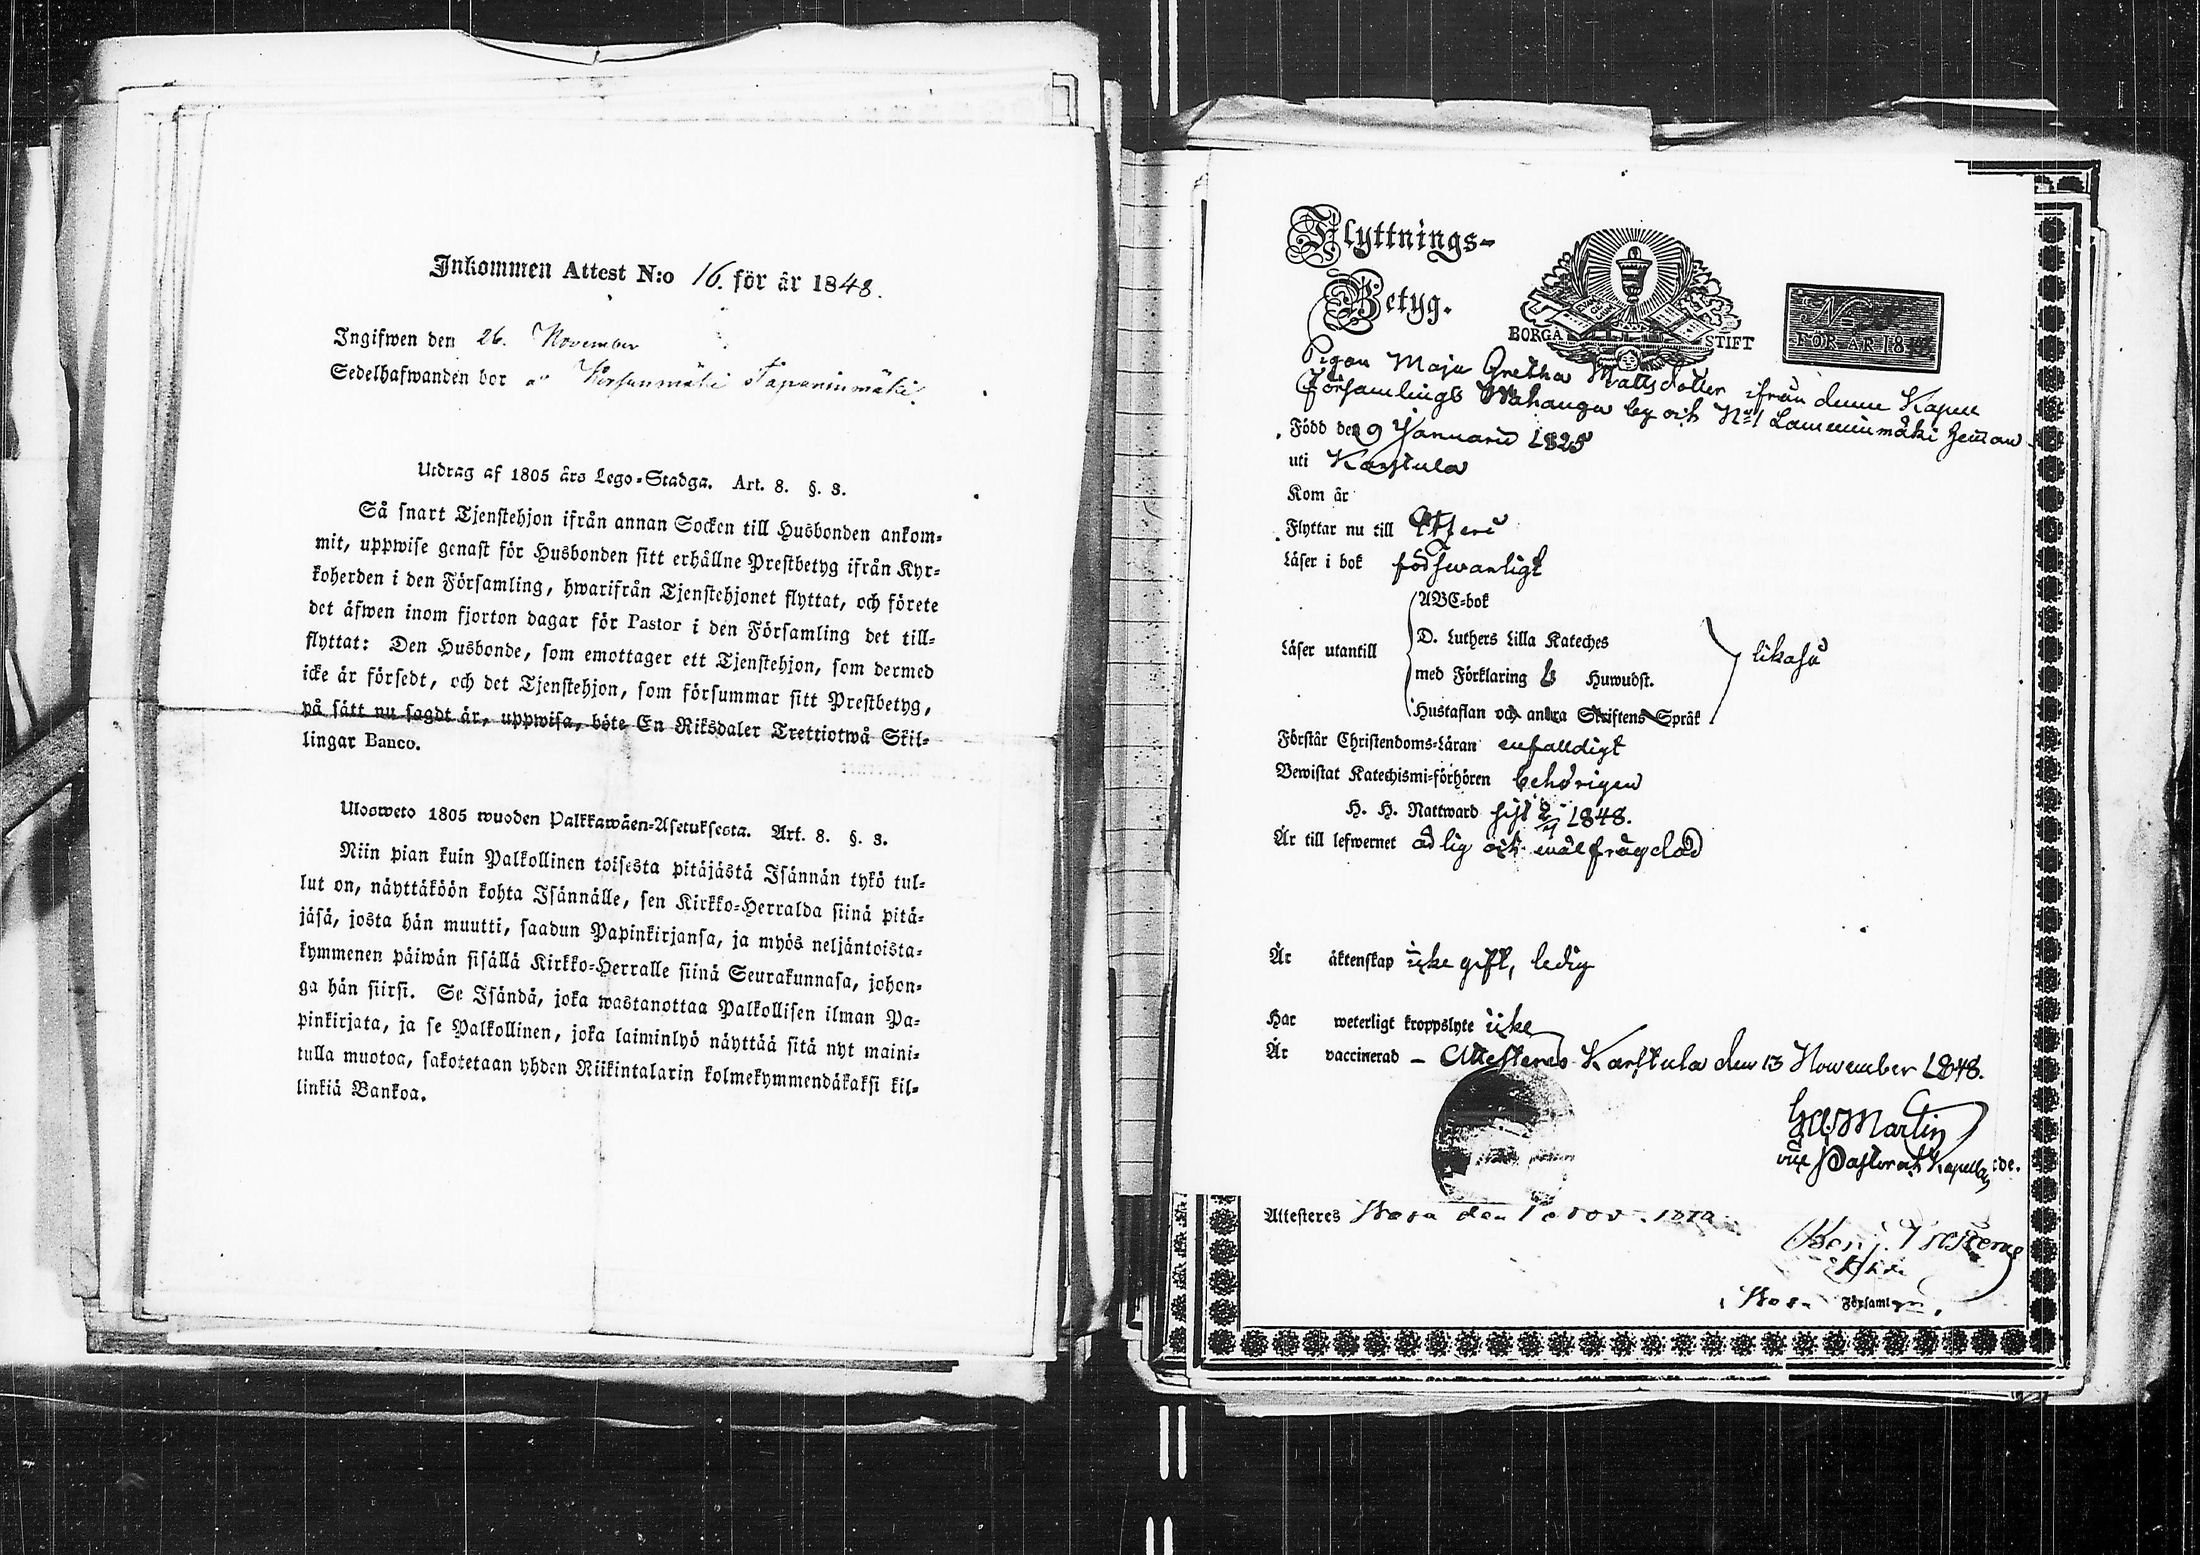 Inkommen Attest N:o 16. för år 1848.
Ingifwen den 26. November
Sedelhafwanden bor å Tapaninmäki.
Utdrag af 1805 års Lego-Stadga. Art. 8. §. 3.
Så snart Tjenstehjon ifrån annan Socken till Husbonden ankom-
mit, uppwise genast för Husbonden sitt erhållne Prestbetyg ifrån Kyr-
koherden i den Församling, hwarifrån Tjenstehjonet flyttat, och förete
det äfwen inom fjorton dagar för Pastor i den Församling det till-
flyttat: Den Husbonde, som emottager ett Tjenstehjon, som dermed
icke är försedt, och det Tjenstehjon, som försummar sitt Prestbetyg,
på sätt nu sagdt är, uppwisa, böte En Riksdaler Trettiotwå Skil-
lingar Banco.
Ulosweto 1805 wuoden Palkkawäen-Asetuksesta. Art. 8. §. 3.
Niin pian kuin Palkollinen toisesta pitäjästä Isännän tykö tul-
lut on, näyttäköön kohta Isännälle, sen Kirkko-Herralda siinä pitä-
jäsä, josta hän muutti, saadun Papinkirjansa, ja myös neljäntoista-
kymmenen päiwän sisällä Kirkko-Herralle siinä Seurakunnasa, johon-
ga hän siirsi. Se Isändä, joka wastanottaa Palkollisen ilman Pa-
pinkirjata, ja se Palkollinen, joka laiminlyö näyttää sitä nyt maini-
tulla muotoa, sakotetaan yhden Riikintalarin kolmekymmendäkaksi kil-
linkiä Bankoa.
Flyttnings-
Betyg.
BORGÅ STIFT
N
FÖR ÅR 18
Pigan Maja Gretha Mattsdotter ifrån denne Kapell
Församlings Wahanga by och N:o 1 Lamminmäki heman
Född den 9 Januarii 1825
uti Karstula
Kom år
Flyttar nu till
Läser i bok förswarligt
Läser utantill
ABC-bok
D. Luthers Lilla Kateches
med Förklaring 6 Huwudst.
Hustaflan och andra Skriftens Språk
likaså
Förstår Christendoms-Läran enfaldigt
Bewistat Katechismi-förhören behörigen
H. H. Nattward sist 1848.
Är till lefwernet ärlig och wälfrägdad
Är äktenskap icke gift, ledig
Har weterligt kroppslyte icke
Är vaccinerad – Attesteras Karstula den 13 November 1848.
Martin
vice Pastor och Kapellan
Attesteres den
Benj.
Församl